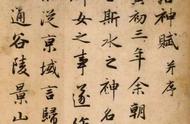 神賦 并序
黄初三年余朝
斯水之神名
女之事遂作
從京域言歸
通谷陵景山